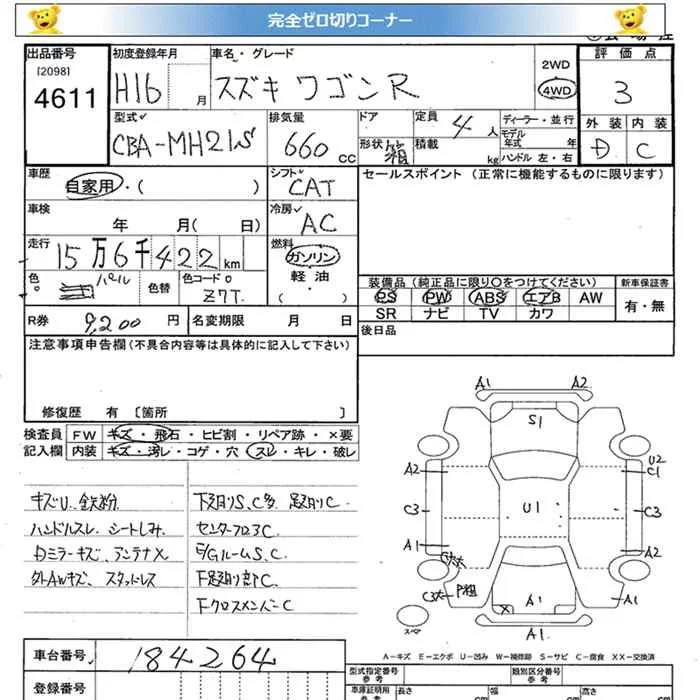 完全ゼロ切りコーナー
出品番号
[2098]
4611
初度登録年月
H16 月
車名・グレード
スズキ ワゴンR
2WD
4WD
評価点
3
型式
CBA-MH21S
排気量
660 cc
ドア
形状 箱
定員 4 人
積載 kg
ディーラー・並行
モデル
年式 年
ハンドル 左・右
外装 内装
D C
車歴
自家用・( )
シフト
CAT
セールスポイント (正常に機能するものに限ります)
車検
年 月( 日)
冷房
AC
走行
15万6千422km
燃料
ガソリン
軽油
( )
色
パール
色替
色コードo
Z7T
装備品 (純正品に限り○をつけてください)
新車保証書
PS PW ABS エアB AW
有・無
SR ナビ TV カワ
R券 9,200 円
名変期限 月 日
後日品
注意事項申告欄(不具合内容等は具体的に記入して下さい)
修復歴 有 [箇所 ]
検査員 FW キズ・飛石・ヒビ割・リペア跡・×要
記入欄 内装 キズ・汚レ・コゲ・穴 スレ・キレ・破レ
キズU 鉄粉
ハンドルスレ シートしみ
Dミラーキズ アンテナX
外AWキズ、スタッドレス
下廻りS、C多 足廻りC
センターフロアC
E/GルームS、C
F足廻り部C
FクロスメンバーC
A1 A2
S1
A2
U2
C1
C3
U1
C3
A1
A2
C3大
P粗
X
A1
A1
A1
スペア
A-キズ E-エクボ U-凹み W-補修跡 S-サビ C-腐食 XX-交換済
車台番号 184264
型式指定番号
参考
類別区分番号
参考
登録番号
車庫証明用
参考
長さ cm 幅 cm 高さ cm